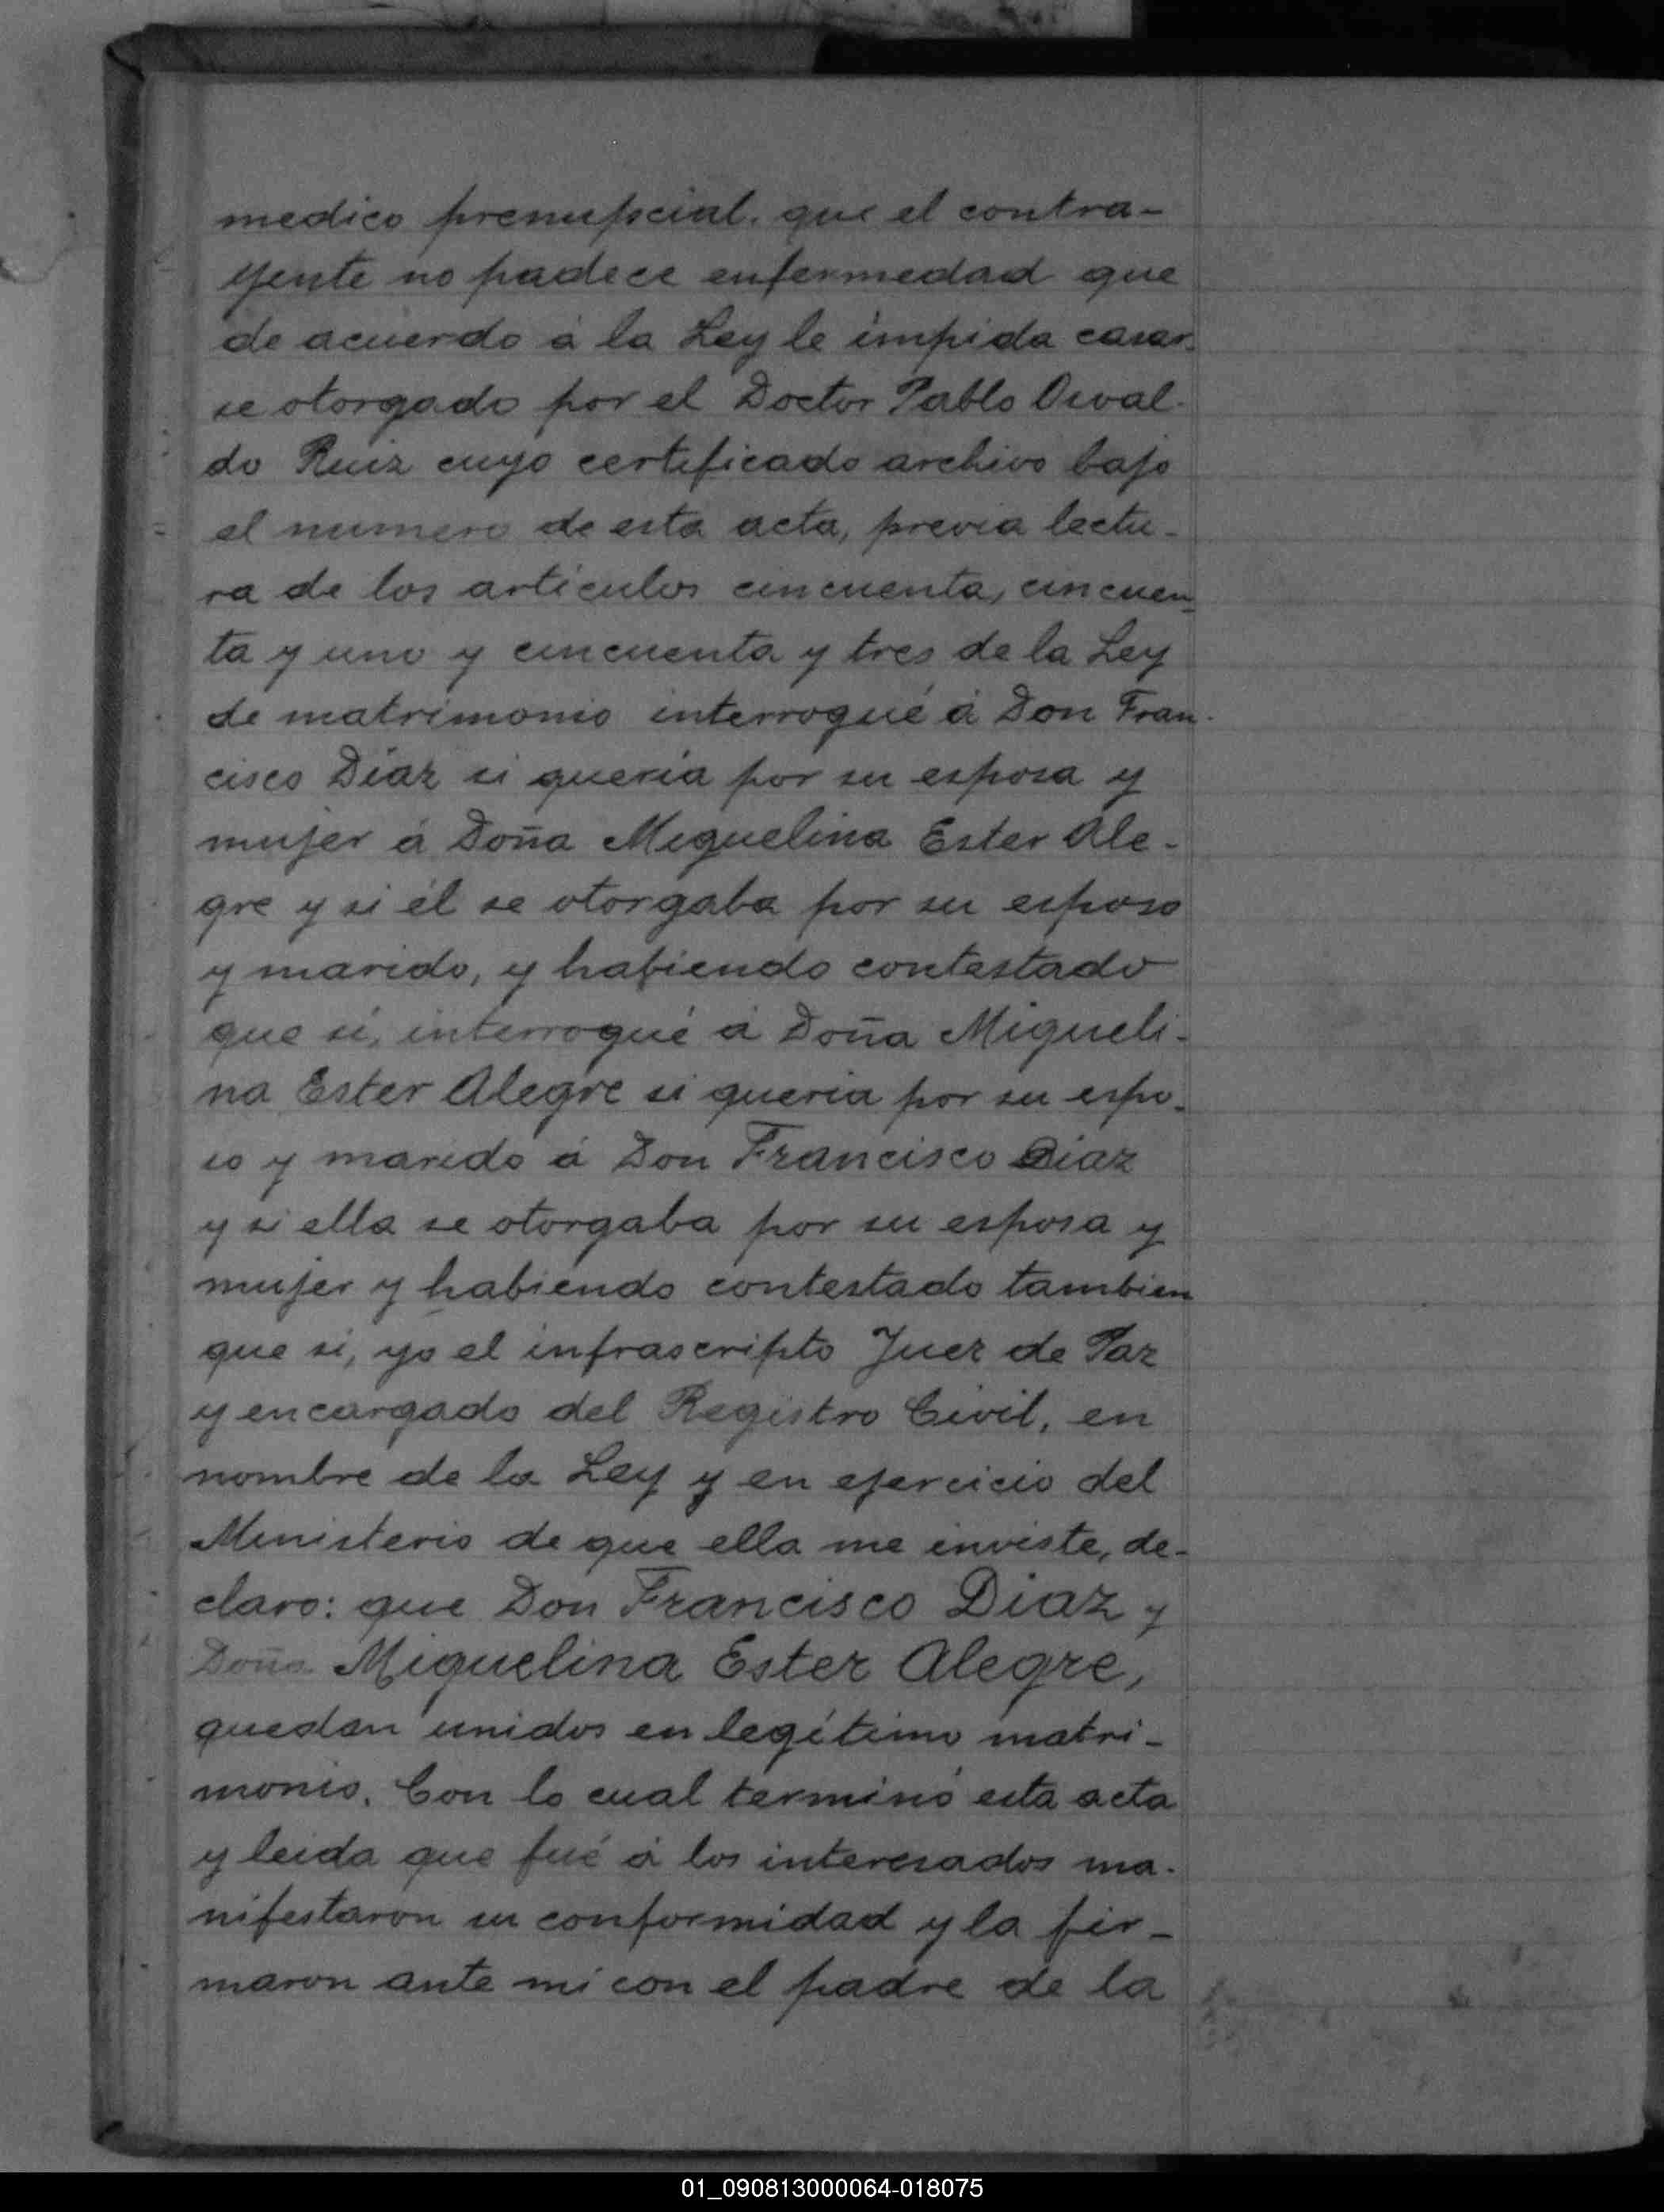 medico prenupcial, que el contra-
yente no padece enfermedad que
de acuerdo á la Ley le impida casar-
se otorgado por el Doctor Pablo Osval-
do Ruiz cuyo certificado archivo bajo
el numero de esta acta, previa lectu-
ra de los artículos cincuenta, cincuen-
ta y uno y cincuenta y tres de la Ley
de matrimonio interrogué á Don Fran-
cisco Díaz si quería por su esposa y
mujer á Doña Miguelina Ester Ale-
gre y si él se otorgaba por su esposo
y marido, y habiendo contestado
que sí, interrogué á Doña Migueli-
na Ester Alegre si quería por su espo-
so y marido á Don Francisco Diaz
y si ella se otorgaba por su esposa y
mujer y habiendo contestado tambien
que sí, yo el infrascripto Juez de Paz
y encargado del Registro Civil, en
nombre de la Ley y en ejercicio del
Ministerio de que ella me inviste, de-
claro: que Don Francisco Diaz y
Doña Miguelina Ester Alegre,
quedan unidos en legítimo matri-
monio. Con lo cual terminó esta acta
y leida que fué á los interesados ma-
nifestaron su conformidad y la fir-
maron ante mi con el padre de la
01_090813000064-018075